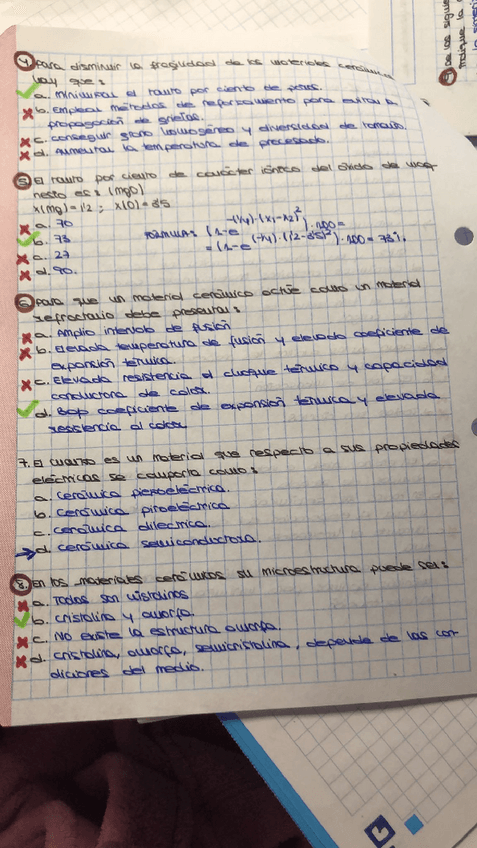 4) Para disminuir la fragilidad de los materiales cerámicos
hay que:
a. Minimizar el tanto por ciento de poros.
b. Emplear métodos de reforzamiento para evitar la
propagación de grietas.
c. conseguir grano homogéneo y diversidad de tamaño.
d. Aumentar la temperatura de procesado.
5) El tanto por ciento de carácter iónico del óxido de mag-
nesio es: (MgO)
X(Mg) = 1'2 ; X(O) = 3'5
a. 70
b. 73
c. 27
d. 90.
FORMULA: (1-e^(-(1/4)·(X1-X2)^2))·100 =
= (1-e^((-1/4)·(1'2-3'5)^2))·100 = 73%.
6) Para que un material cerámico actúe como un material
refractario debe presentar:
a. Amplio intervalo de fusión
b. Elevada temperatura de fusión y elevado coeficiente de
expansión térmica.
c. Elevada resistencia al choque térmico y capacidad
conductora de calor.
d. Bajo coeficiente de expansión térmica y elevada
resistencia al calor
7. El cuarzo es un material que respecto a sus propiedades
eléctricas se comporta como:
a. cerámica piezoeléctrica.
b. cerámica piroeléctrica
c. cerámica dieléctrica.
d. cerámica semiconductora.
8. En los materiales cerámicos su microestructura puede ser:
a. Todos son cristalinos
b. cristalina y amorfa.
c. No existe la estructura amorfa.
d. cristalina, amorfa, semicristalina, depende de las con-
diciones del medio.
9 De los sigue
indique la